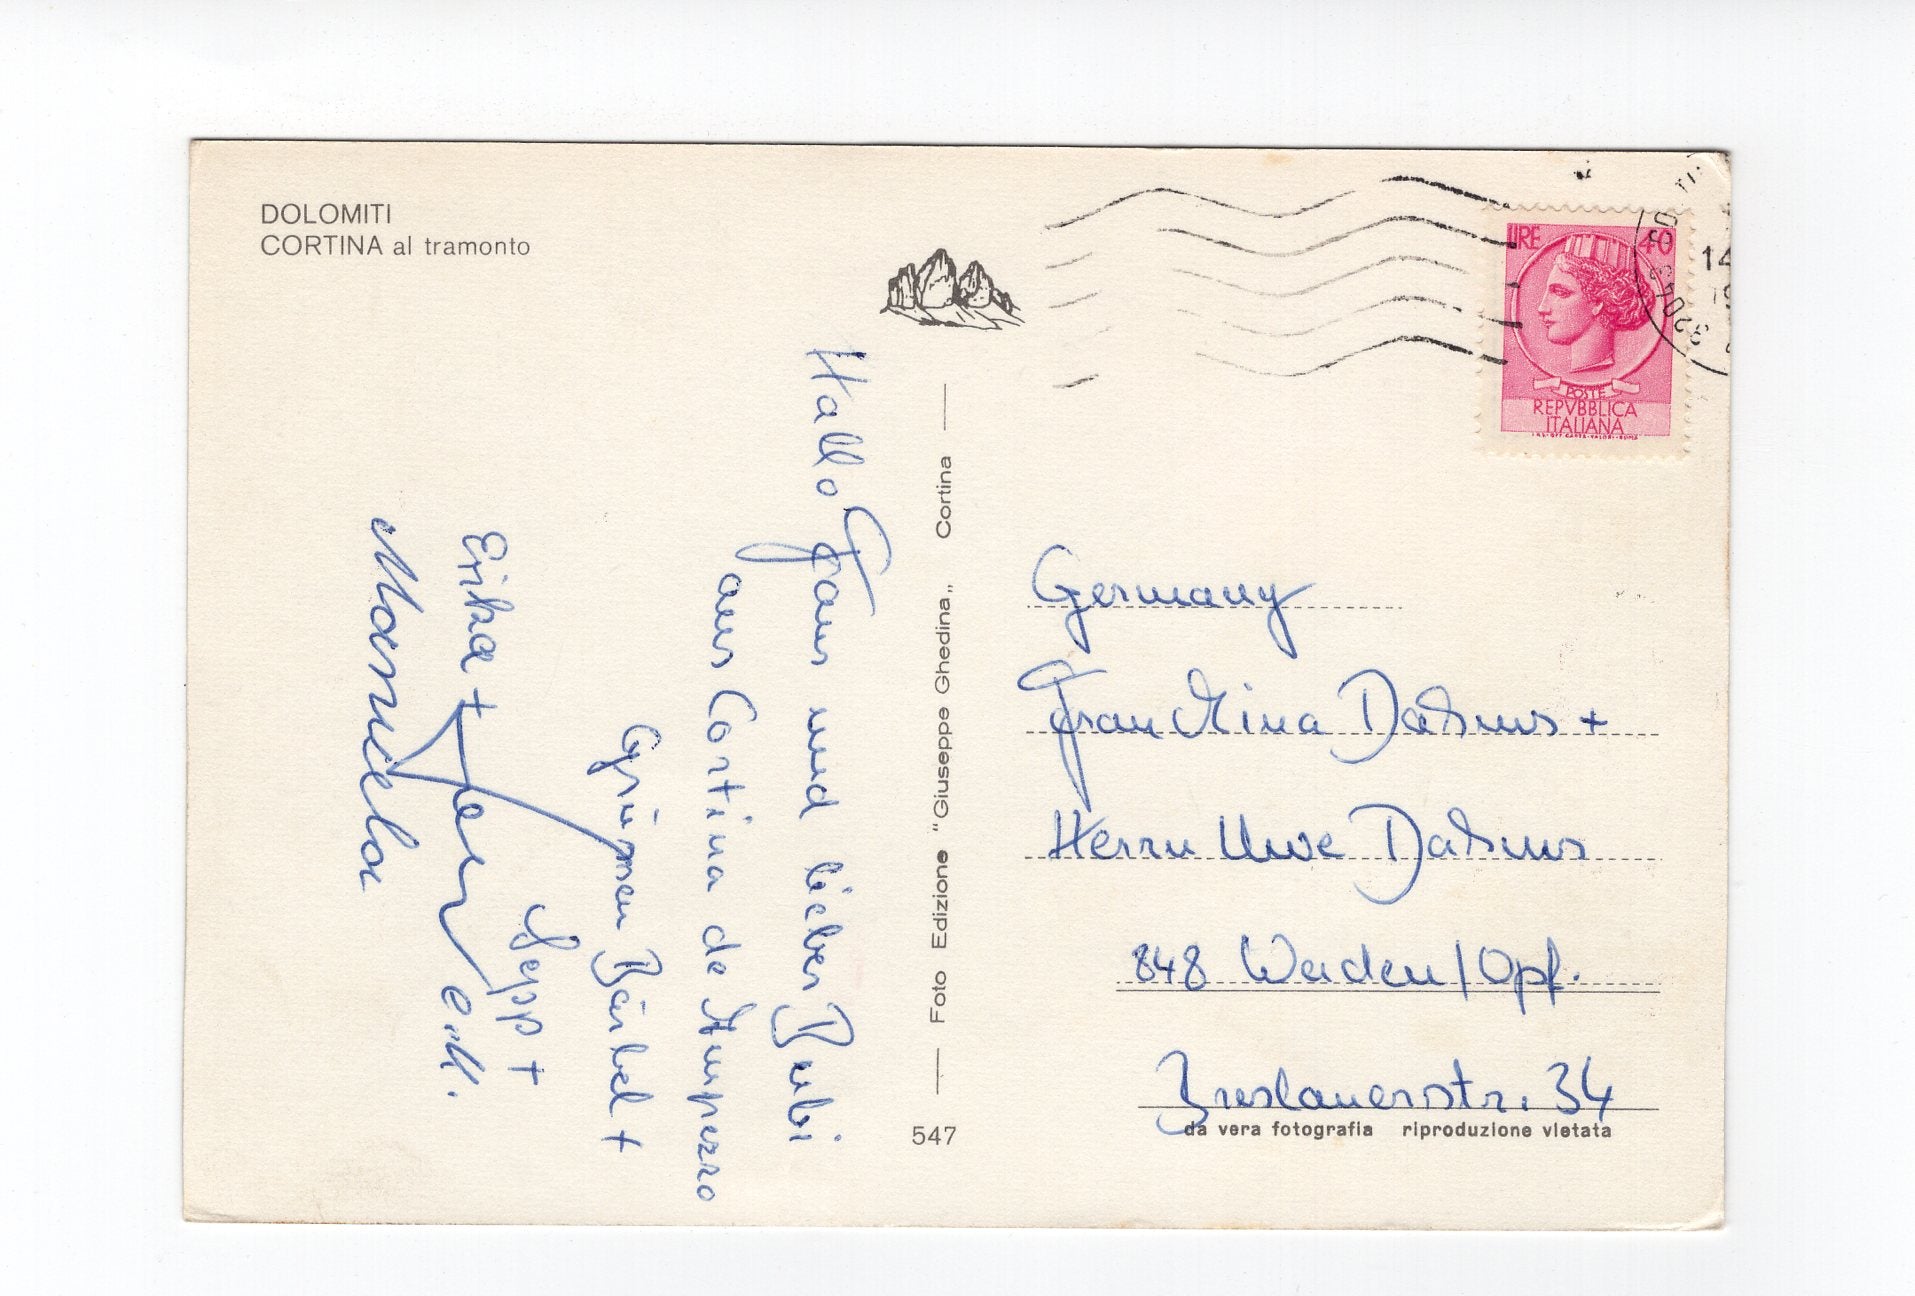 DOLOMITI
CORTINA al tramonto
Hallo und lieber Bubi
aus Cortina de Ampezzo
Bärbel +
Sepp +
Erika +
Manuela
Foto Edizione "Giuseppe Ghedina„ Cortina
547
LIRE 40
POSTE
REPVBBLICA
ITALIANA
14
Germany
Frau Mina Dahms +
Herrn Uwe Dahms
848 Weiden/Opf.
Breslauerstr. 34
da vera fotografia riproduzione vietata